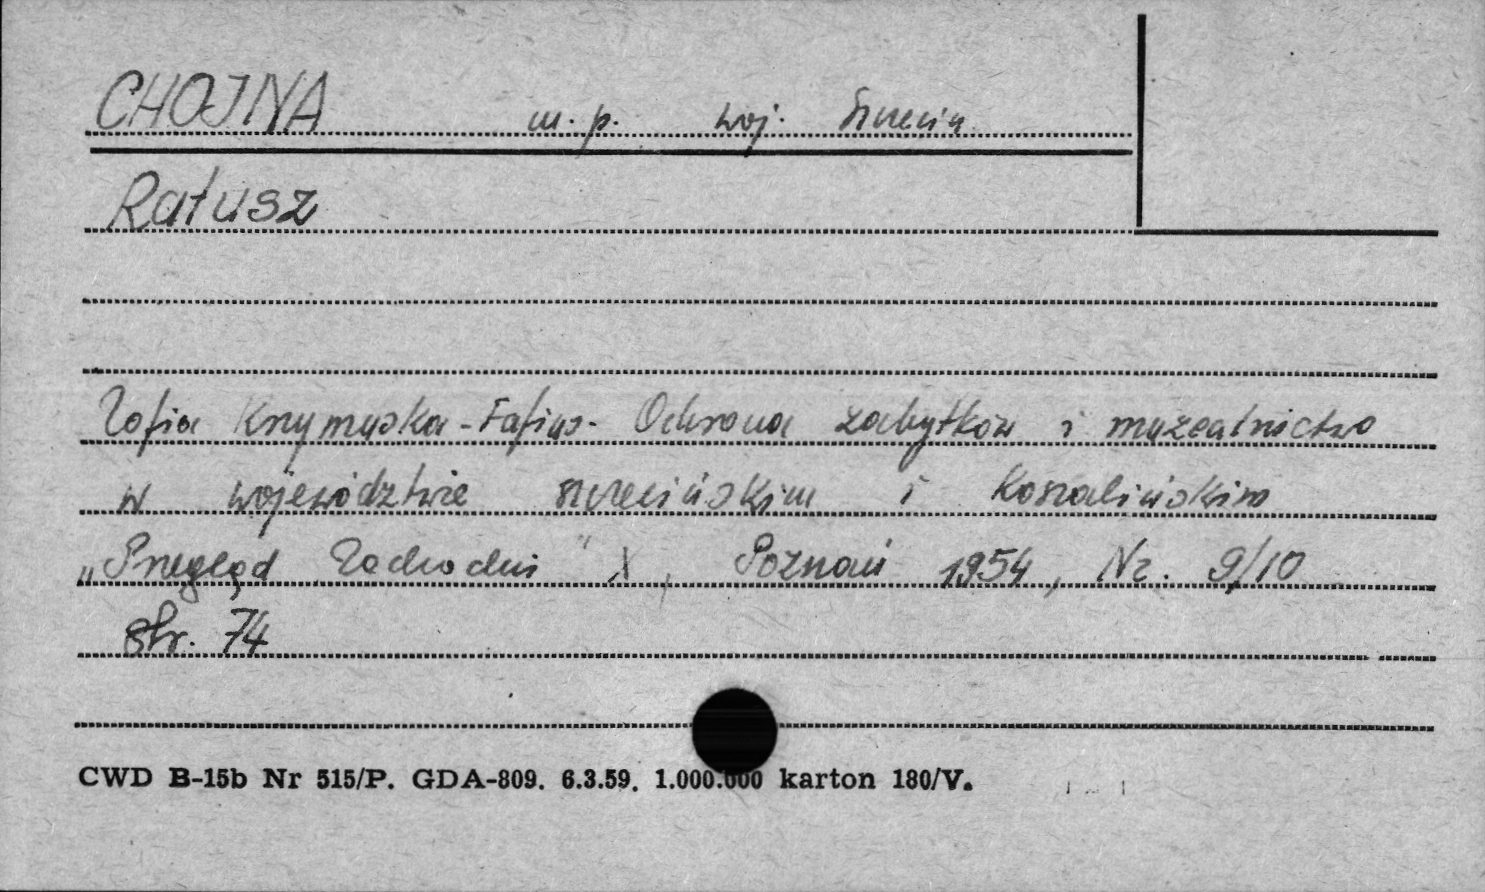 CHOJNA m. p. woj. Szczecin
Ratusz
Zofia Krzymuska-Fafius- Ochrona zabytków i muzealnictwo
w województwie szczecińskim i koszalińskim
„Przegląd Zachodni" X, Poznań 1954, Nr. 9/10
str. 74
CWD B-15b Nr 515/P. GDA-809. 6.3.59. 1.000.000 karton 180/V.